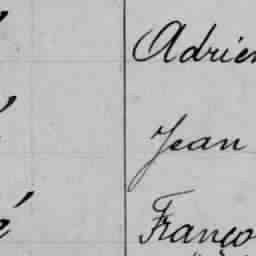 Adrien
Jean
Franço